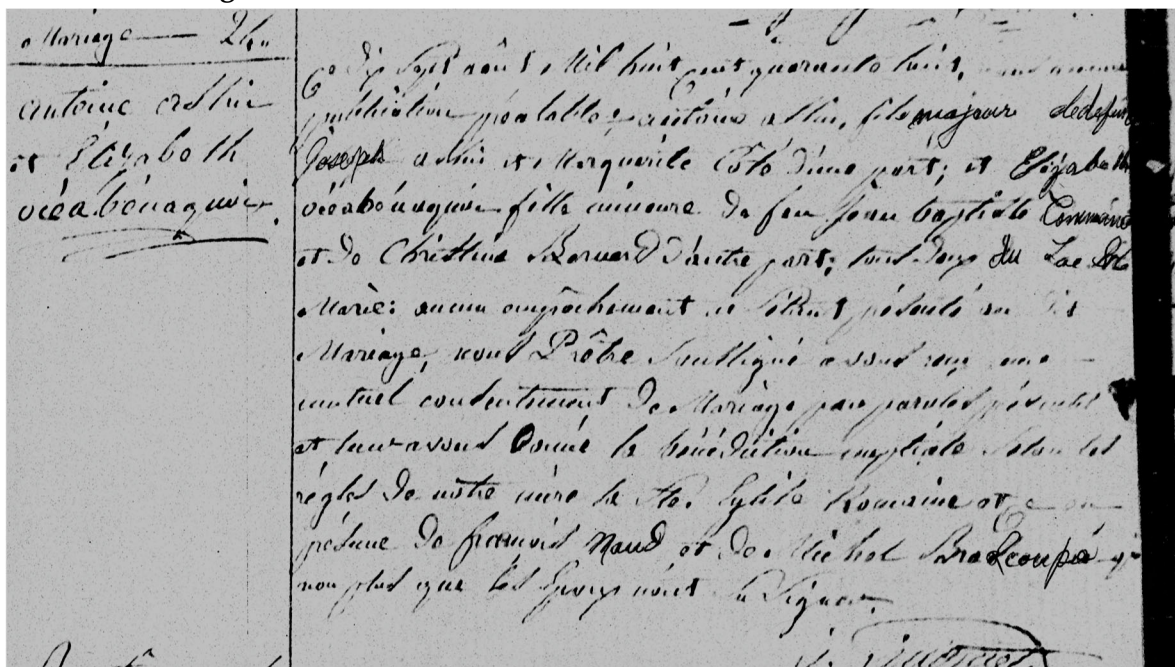 Mariage — 24.
antoine
et Élizabeth
Ce dix Sept août Mil huit Cent quarante huit, sans aucune
publication préalable, antoine fils majeur de defunt
Joseph et Marguerite Coté d'une part; et Elizabeth
fille mineure de feu Jean baptiste Commanda
et de Christine Bernard d'autre part; tous deux du Lac Ste
Marie: aucun empêchement ne s'étant présenté au dit
Mariage, nous Prêtre Soussigné avons reçu
mutuel consentement de Mariage par paroles présent
et leur avons donné la bénédiction nuptiale Selon les
règles de notre mère la Ste. Eglise Romaine et ce en
présence de françois Naud et de Michel Brascoupé qui
non plus que les Epoux n'ont Su Signer.